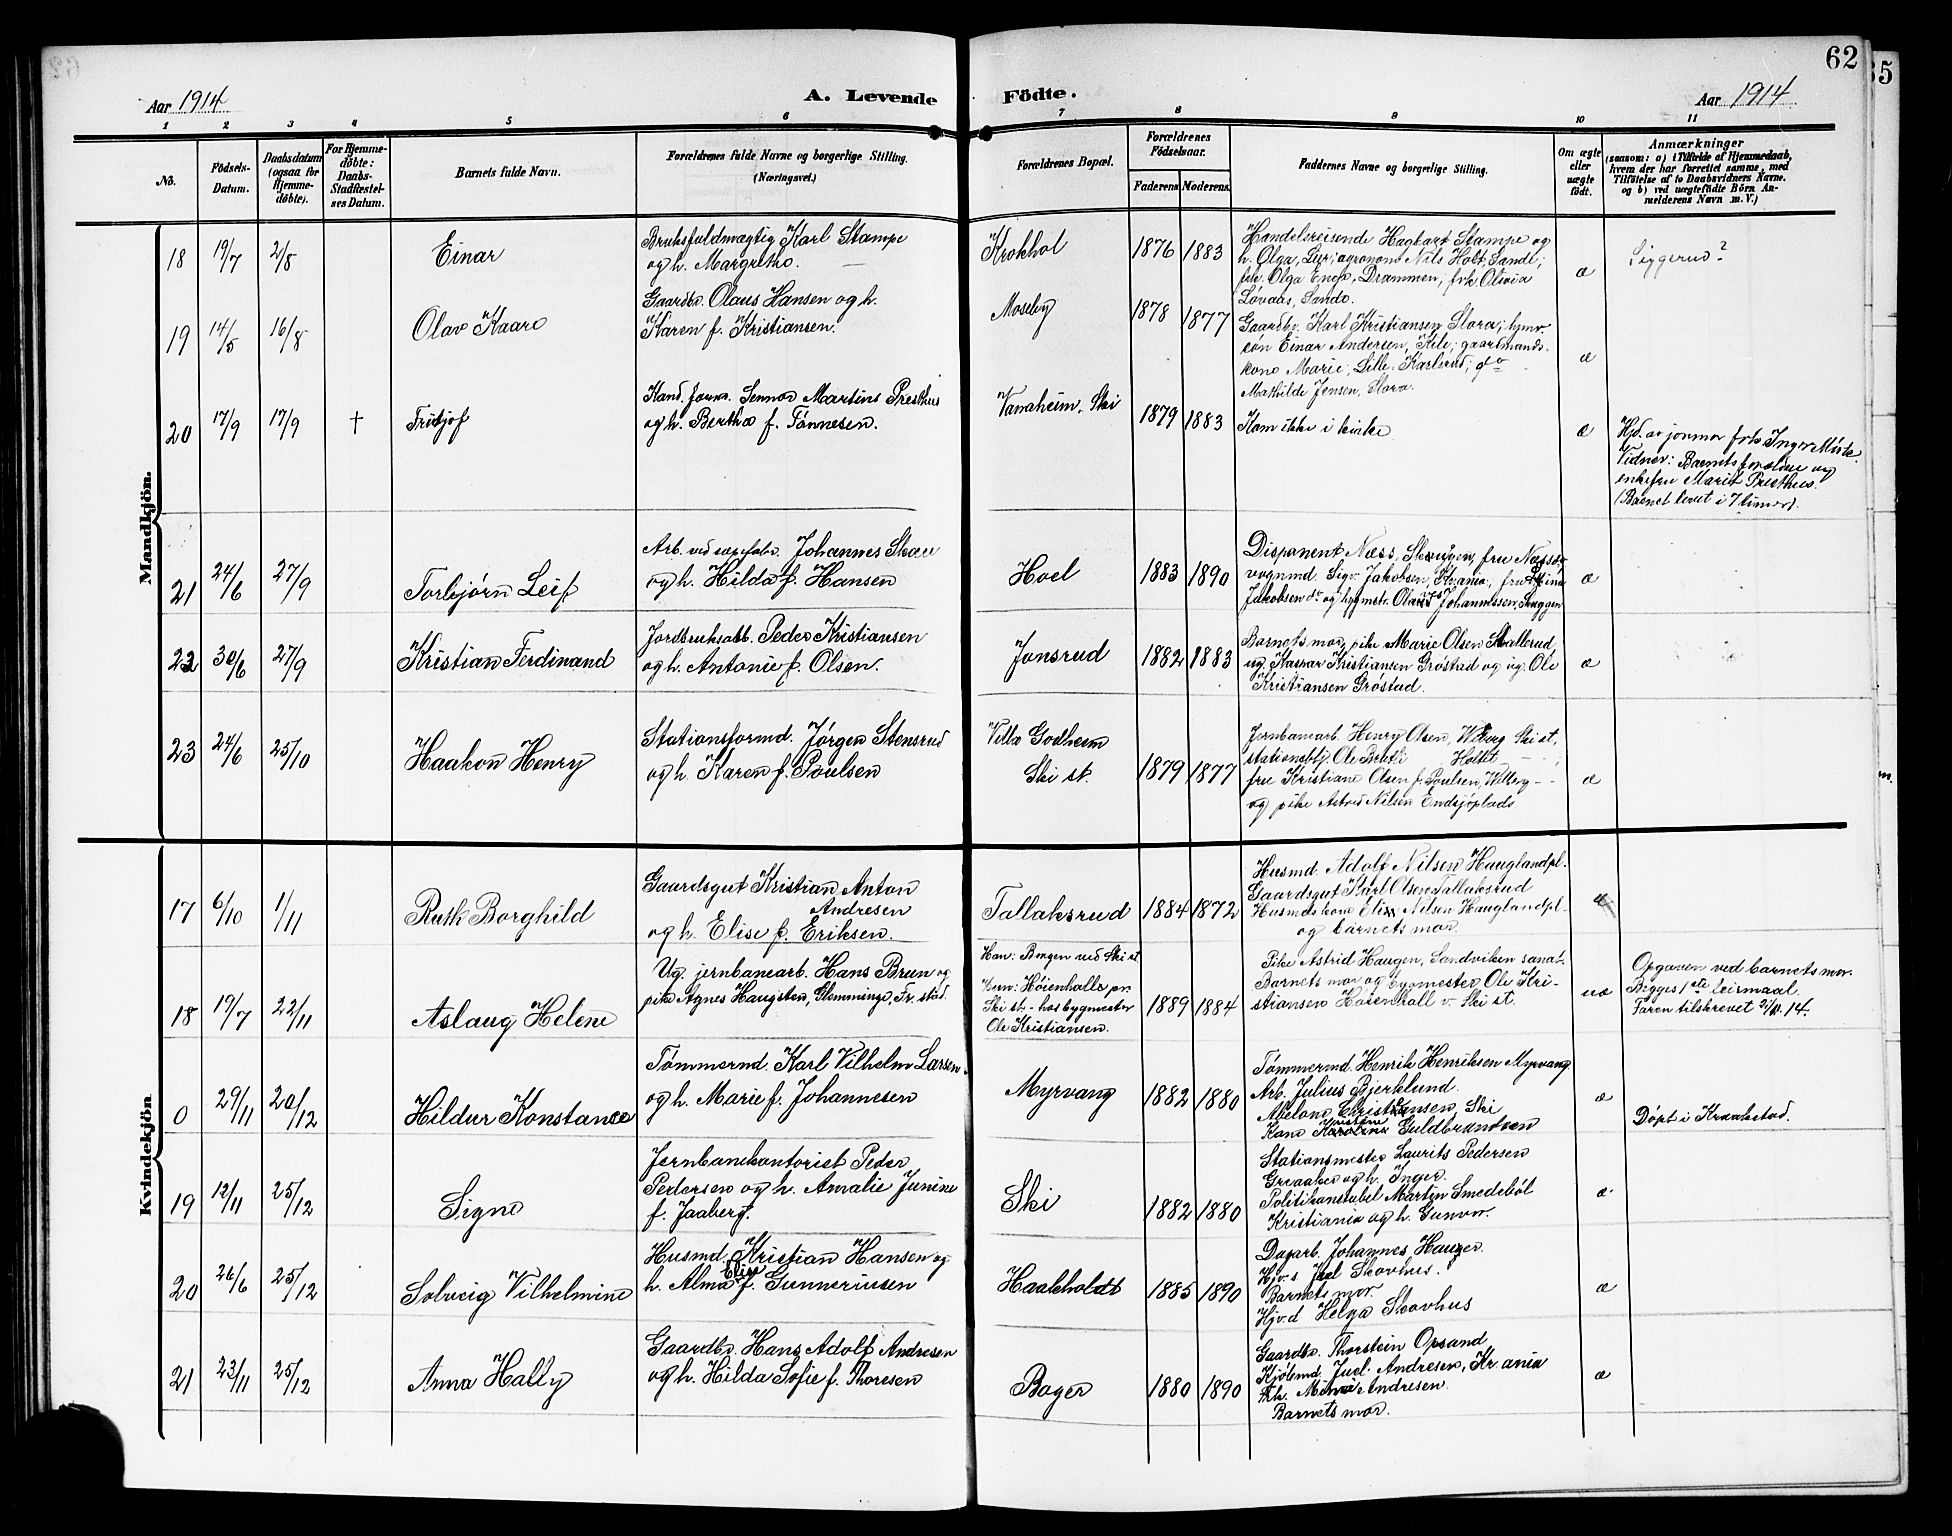 62
Aar 1914
A. Levende
Fødte.
Aar 1914
1 2 3 4 5 6 7 8 9 10 11
No.
Fødsels-Datum.
Daabsdatum (ogsaa for Hjemme-døbte).
For Hjemme-døbte: Daabs-Stadfæstel-ses Datum.
Barnets fulde Navn.
Forældrenes fulde Navne og borgerlige Stilling. (Næringsvei.)
Forældrenes Bopæl.
Forældrenes Fødselsaar.
Faderens Moderens
Faddernes Navne og borgerlige Stilling.
Om ægte eller uægte født.
Anmærkninger
(saasom: a) i Tilfælde af Hjemmedaab, hvem der har forrettet samme, med Tilføielse af to Daabsvidners Navne. og b) ved uægtefødte Børn An-melderens Navn m. V.)
Mandkjön.
18 19/7 2/8 Einar
Bruksfuldmægtig Karl Stampe
og h. Margrethe.
Krokhol 1876 1883
Handelsreisende Hagbart Stampe og
h. Olga, Lyr; agronom Nils Holt, Sande;
frk. Olga Engø, Drammen; frk. Olivia
Løvaas, Sande.
æ
Siggerud?
19 14/5 16/8 Olav Kaare
Gaardbr. Olaus Hansen og h.
Karen f. Kristiansen.
Moseby 1878 1877
Gaardbr. Karl Kristiansen Slora;
søn Einar Andersen, Kile; gaardmands-
kone Marie, Lille-Karlsrud; do
Mathilde Jensen, Slora.
æ
20 17/9 17/9 † Fritjof
Kand. farm. Sennar Martins Presthus
og h. Bertha f. Tønnesen.
Vanaheim, Ski 1879 1883
Kom ikke i kirke.
æ
Hjd. av jormor frk. Inger
Vidner: Barnets forældre og
enkefru Marit Presthus.
(Barnet levet i 7 timer).
21 24/6 27/9 Torbjørn Leif
Arb. ved Johannes Skau
og h. Hilda f. Hansen
Hoel 1883 1890
Disponent Næss, Skuggen, fru Næss
vognmd. Sigv. Jakobsen, Kr.ania, fru
Jakobsen do og bygmstr. Johannessen, Skuggen
æ
22 30/6 27/9 Kristian Ferdinand
Jordbruksarb. Peder Kristiansen
og h. Antonie f. Olsen.
Jonsrud 1882 1883
Barnets mor, pike Marie Olsen Skallerud,
ug. Kaspar Kristiansen Grøstad og ug. Ole
Kristiansen Grøstad.
æ
23 24/6 25/10 Haakon Henry
Stationsformd. Jørgen Stensrud
og h. Karen f. Poulsen
Villa Godheim
Ski st.
1879 1877
Jernbanearb. Henry Olsen, Wiberg Ski st,
stationsbtj. Ole Holtet
fru Kristiane Olsen f. Poulsen, Wilberg
og pike Astrid Nilsen Endsjøplads
æ
Kvindekjön
17 6/10 1/11 Ruth Borghild
Gaardsgut Kristian Anton
Andresen
og h. Elise f. Eriksen.
Tallaksrud 1884 1872
Husmd. Adolf Nilsen Hauglandpl.
Gaardsgut Karl Olsen Tallaksrud
Husmdskone Elise Nilsen Hauglandpl
og barnets mor.
æ
18 19/7 22/11 Aslaug Helene
Ug. jernbanearb. Hans Brun og
pike Agnes Haugsten, Glemminge, Fr.stad.
Han: Borgen ved Ski st
Hun: Høienhalla pr.
Ski st. - hos bygmester
Ole Kristiansen.
1889 1884
Pike Astrid Haugen, Sandviken sanat.
Barnets mor og bygmester Ole Kri-
stiansen Høienhall v. Ski st.
uæ
Opgaven ved barnets mor.
Begges 1ste leirmaal.
Faren tilskrevet 21/10.14.
0 29/11 20/12 Hildur Konstance
Tømmermd. Karl Vilhelm Larsen
og h. Marie f. Johannesen
Myrvang 1882 1880
Tømmermd. Henrik Henriksen Myrvang
Arb. Julius Bjerklund.
Abelone Christiansen, Ski
Kone Guldbrandsen
æ
Døpt i Kraakstad.
19 12/11 25/12 Signe
Jernbanekontorist Peder
Pedersen og h. Amalie Junine
f. Jaaberg.
Ski 1882 1880
Stationsmester Laurits Pedersen
Greaaker og h. Inger.
Politikonstabel Martin Smedebøl
Kristiania og h. Gunvor.
æ
20 26/6 25/12 Solveig Vilhelmine
Husmd. Kristian Hansen og
Elise
h. Alma f. Gunneriusen
Haakholdt 1885 1890
Dagarb. Johannes Hauger.
Hjv.s Juel Skovhus.
Barnets mor.
Hjv.d Helga Skovhus
æ
21 23/11 25/12 Anna Hally
Gaardbr. Hans Adolf Andresen
og h. Hilda Sofie f. Thoresen
Bøger 1880 1890
Gaardbr. Thorstein Opsand
Kjøbmd. Juel Andresen, Kr.ania
Frk. Andresen.
Barnets mor.
æ